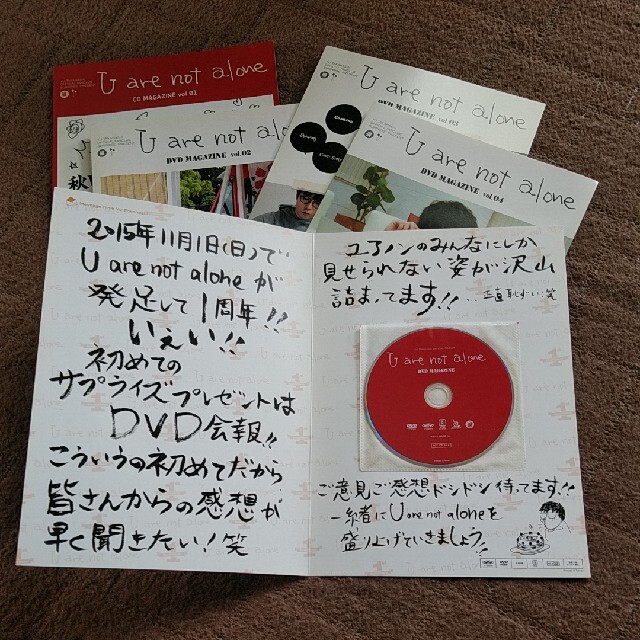 U are not alone
CD MAGAZINE vol 01
U are not alone
DVD MAGAZINE vol 03
U are not alo
DVD MAGAZINE vol.02
U are not alone
DVD MAGAZINE vol 04
秋
2015年11月1日(日)で
U are not aloneが
発足して1周年!!
いえい!!
初めての
サプライズプレゼントは
DVD会報!!
こういうの初めてだから
皆さんからの感想が
早く聞きたい!笑
ユアノンのみんなにしか
見せられない姿が沢山
詰まってます!!
U are not alone
DVD MAGAZINE
ご意見ご感想ドシドシ待ってます!!
一緒にU are not aloneを
盛り上げていきましょう!!